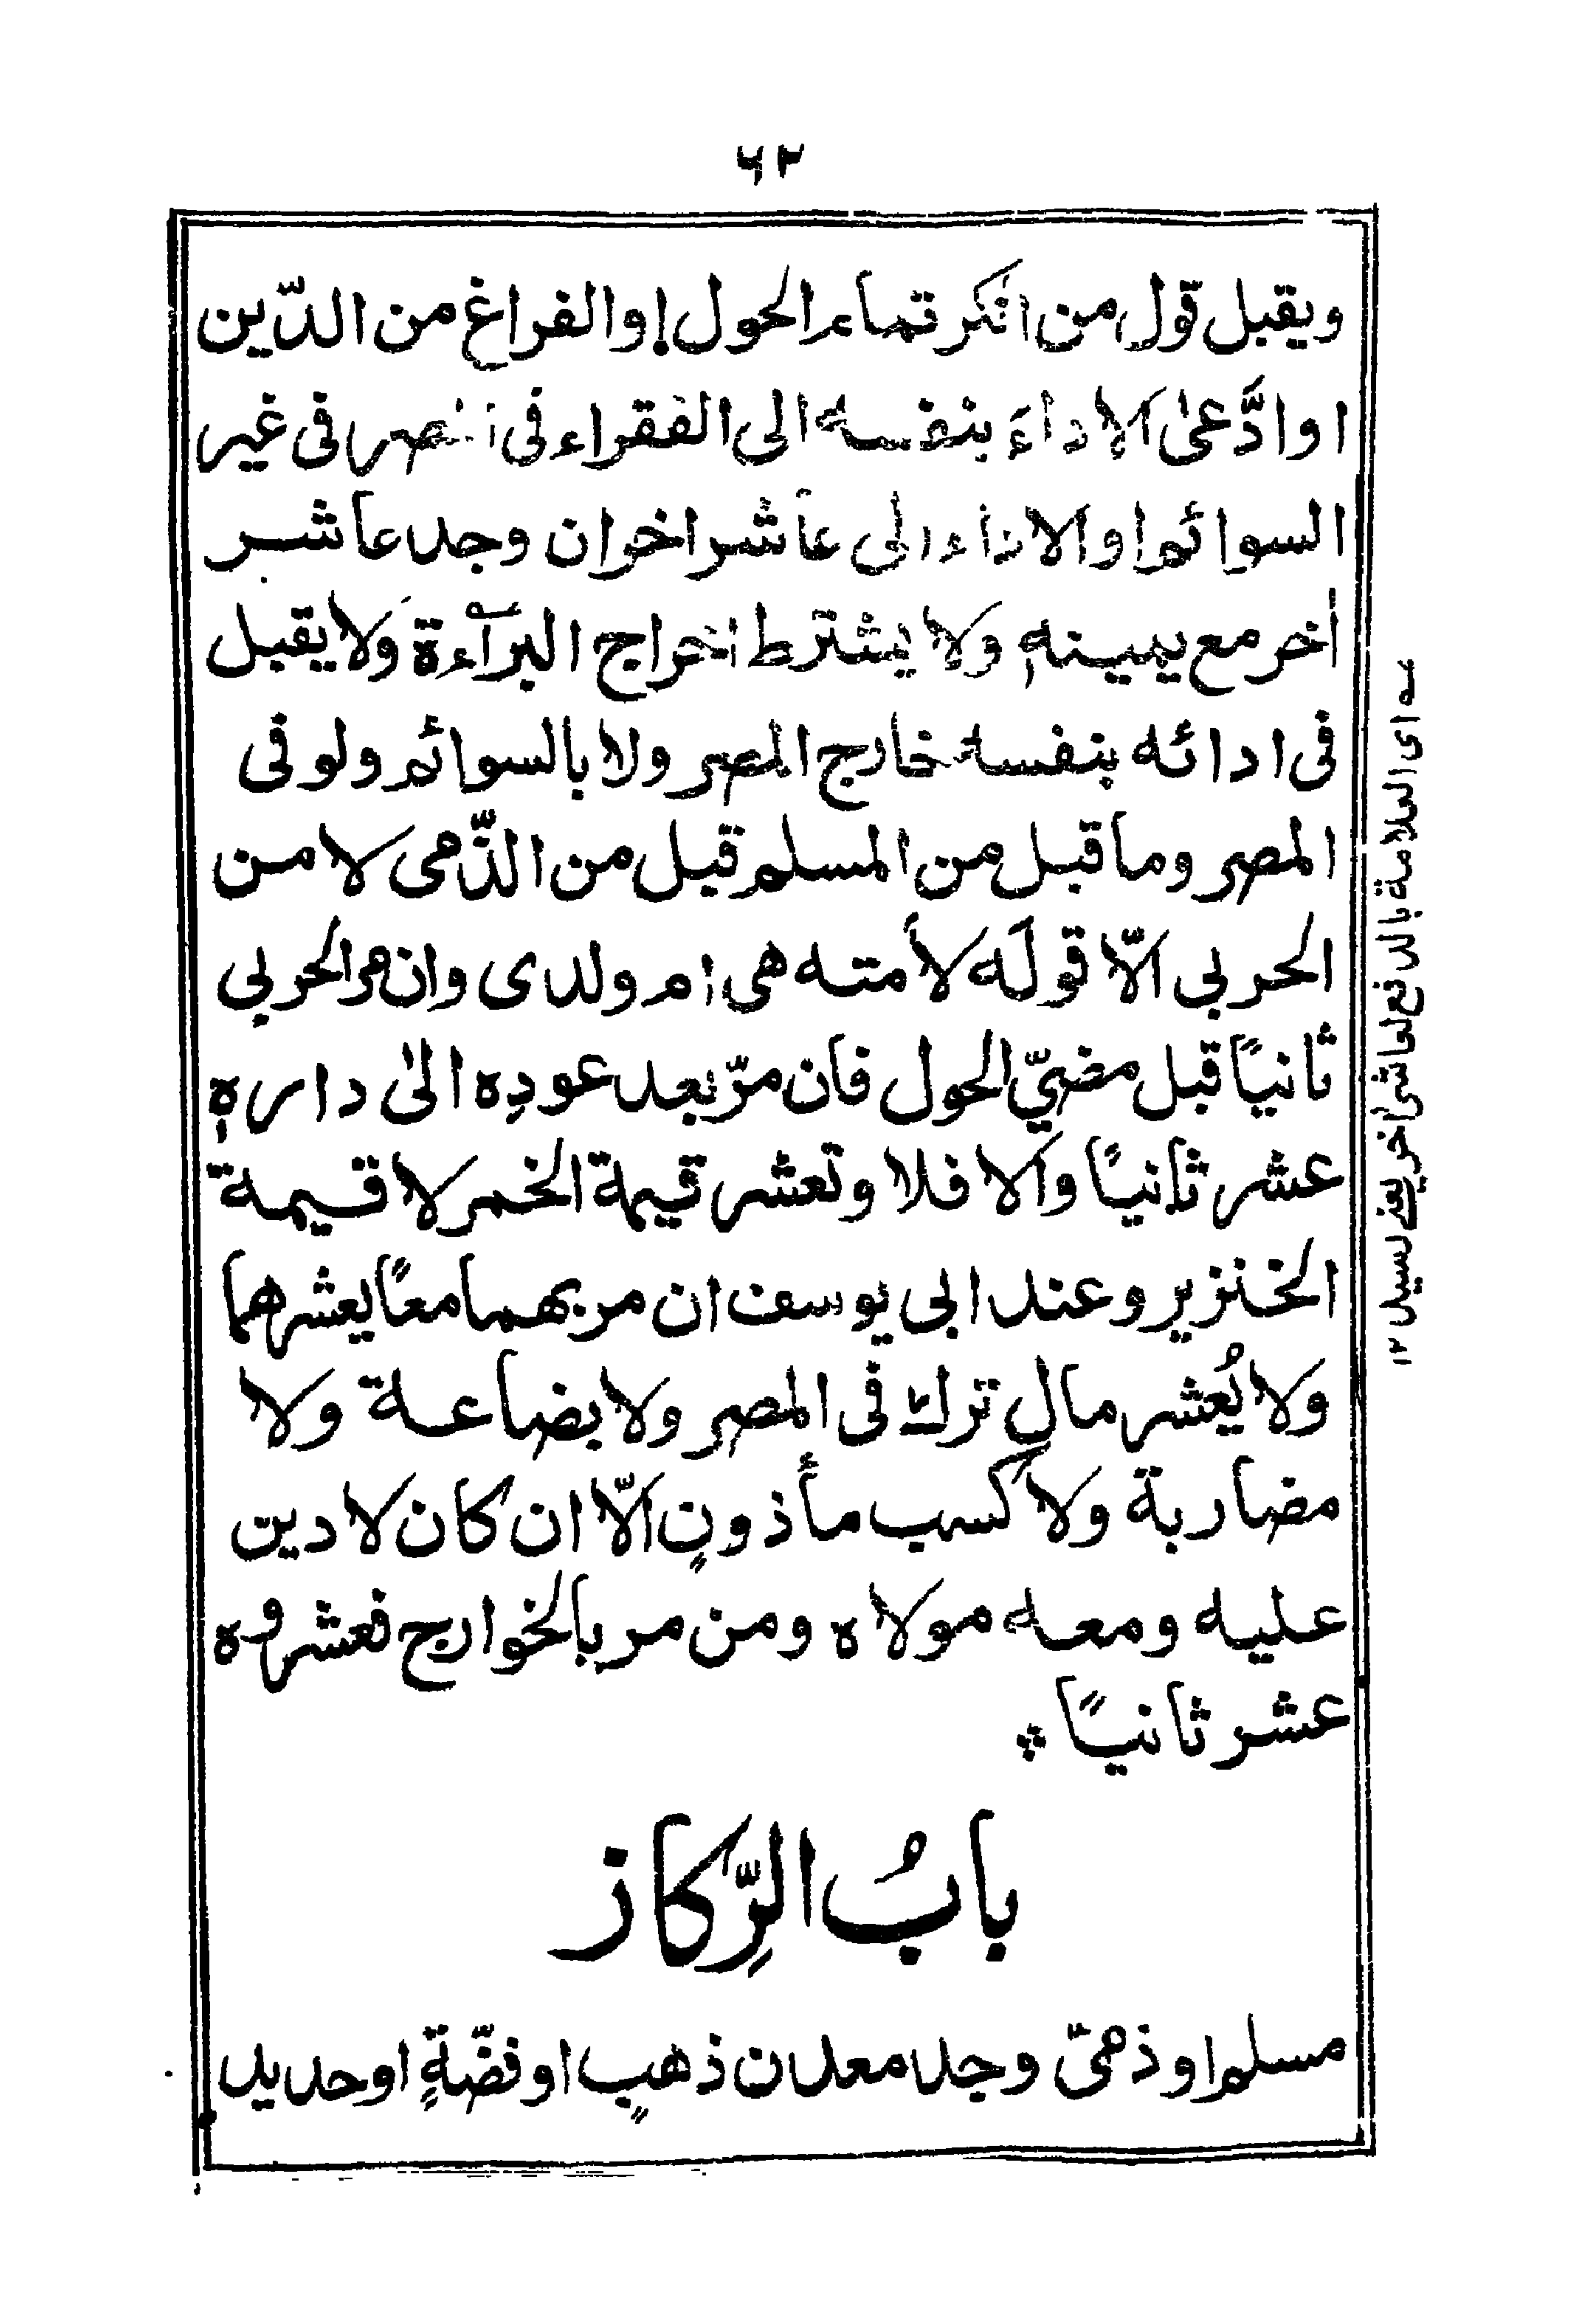 ٦٢
ويقبل قول من انكر تمام الحول او الفراغ من الدّين
او ادَّعىٰ الاداءَ بنفسه الى الفقراء فى المصر فى غير
السوائم او الاداء الى عاشر اخر ان وجد عاشر
اخر مع يمينهٖ ولا يشترط اخراج البراءة ولا يقبل
فى ادائه بنفسه خارج المصر ولا بالسوائم ولو فى
المصر وما قبل من المسلم قبل من الذّمى لا من
الحربى الّا قولَه لأمته هى ام ولدى وان مر الحربى
ثانيًا قبل مضىّ الحول فان مرّ بعد عودِه الىٰ دارهٖ
عشر ثانيًا والا فلا وتعشر قيمة الخمر لا قيمة
الخنزير وعند ابى يوسف ان مر بهما معًا يعشرهما
ولا يُعشر مال ترك فى المصر ولا بضاعة ولا
مضاربة ولا كسب مأذونٍ الّا ان كان لا دين
عليه ومعه مولاه ومن مر بالخوارج فعشروه
عشر ثانيًا
بابُ الرِّكاز
مسلم او ذمىّ وجد معدن ذهبٍ او فضّةٍ او حديد
اى العلامة بالدفع لعاشر اخر يعنے لسيل ١٢